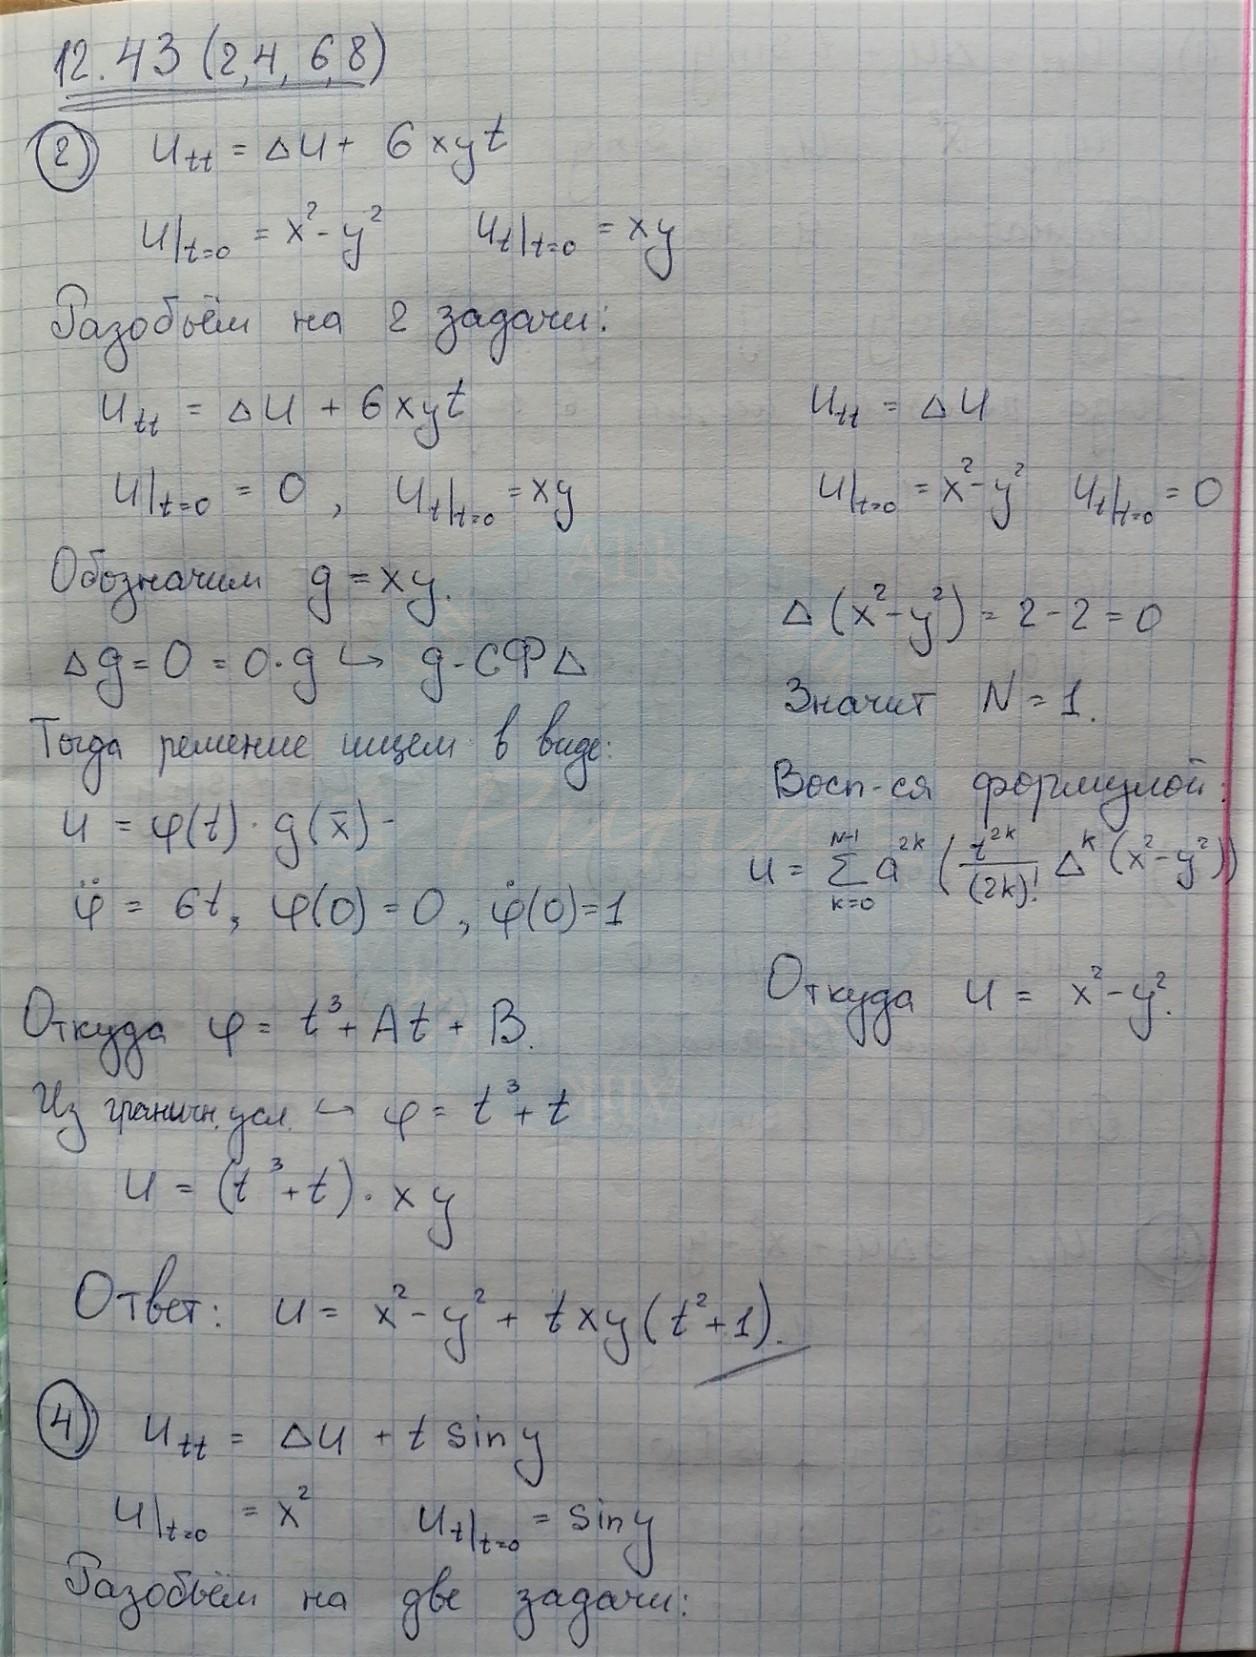 12.43 (2,4,6,8)
② u_tt = Δu + 6xyt
u|_{t=0} = x² - y²   u_t|_{t=0} = xy
Разобьём на 2 задачи:
u_tt = Δu + 6xyt
u|_{t=0} = 0, u_t|_{t=0} = xy
Обозначим g = xy.
Δg = 0 = 0·g ↪ g - СФ Δ
Тогда решение ищем в виде:
u = φ(t)·g(x̄) -
φ̈ = 6t, φ(0) = 0, φ̇(0) = 1
Откуда φ = t³ + At + B.
Из граничн. усл. ↪ φ = t³ + t
u = (t³ + t)·xy
u_tt = Δu
u|_{t=0} = x² - y²   u_t|_{t=0} = 0
Δ(x² - y²) = 2 - 2 = 0
Значит N = 1.
Восп-ся формулой:
u = Σ_{k=0}^{N-1} a^{2k} (t^{2k}/(2k)! Δ^k (x² - y²))
Откуда u = x² - y².
Ответ: u = x² - y² + txy(t² + 1).
④ u_tt = Δu + t sin y
u|_{t=0} = x²   u_t|_{t=0} = sin y
Разобьём на две задачи: